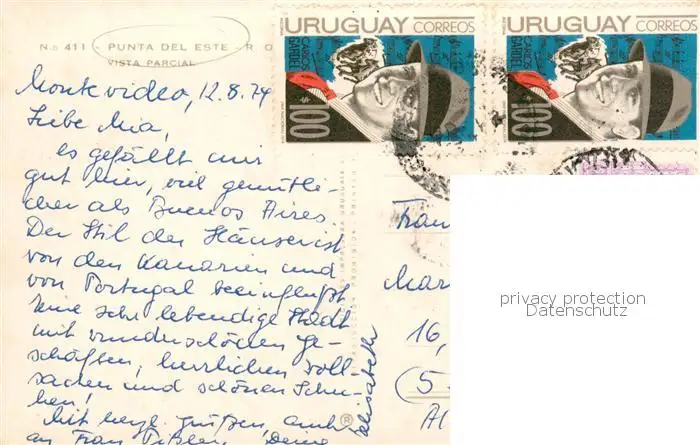 URUGUAY CORREOS
CARLOS GARDEL
$ 100
URUGUAY CORREOS
CARLOS GARDEL
$ 100
N.o 411 - PUNTA DEL ESTE - R O
VISTA PARCIAL
Montevideo, 12.8.74
Liebe Mia,
es gefällt mir
gut hier, viel gemütli-
cher als Buenos Aires.
Der Stil der Häuser ist
von den Kanarien und
von Portugal beeinflußt
Eine sehr lebendige Stadt
mit wunderschönen Ge-
schäften, herrlichen Woll-
sachen und schönen Schu-
hen!
Mit herzl. Grüßen, auch
an Frau Deine
Elisabeth
Frau
Mar
16,
5
privacy protection
Datenschutz